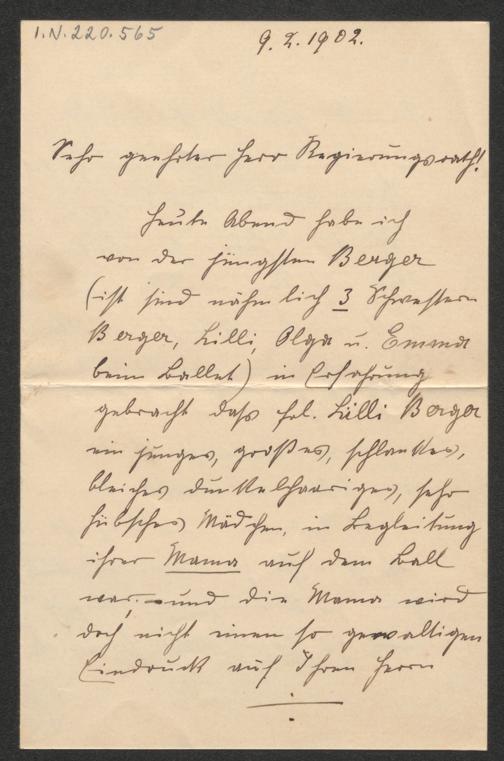 I.N. 220.565
9.2.1902.
Sehr geehrter Herr Regierungsrath!
Heute Abend habe ich
von der jüngsten Berger
(ist sind nähmlich 3 Schwestern
Berger, Lilli, Olga u. Emma
beim Ballet) in Erfahrung
gebracht daß frl. Lilli Berger
ein junges, großes, schlankes,
bleiches dunkelhaariges, sehr
hübsches Mädchen, in Begleitung
ihrer Mama auf dem Ball
war, – und die Mama wird
doch nicht einen so gewaltigen
Eindruck auf Ihren Herrn